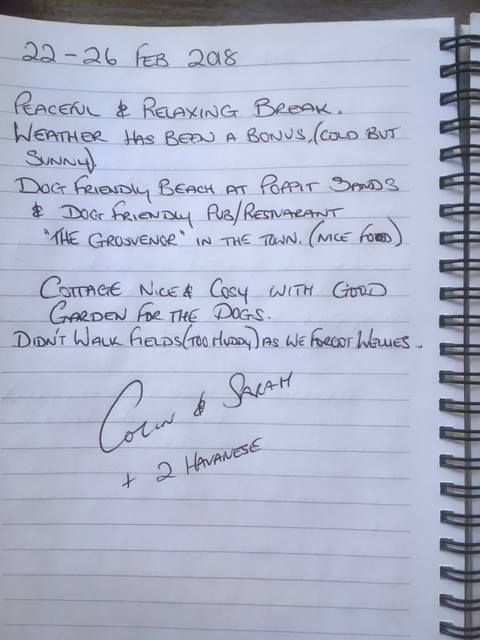 22 - 26 FEB 2018
PEACEFUL & RELAXING BREAK.
WEATHER HAS BEEN A BONUS, (COLD BUT
SUNNY).
DOG FRIENDLY BEACH AT POPPIT SANDS
& DOG FRIENDLY PUB/RESTUARANT
"THE GROSVENOR" IN THE TOWN. (NICE FOOD)
COTTAGE NICE & COSY WITH GOOD
GARDEN FOR THE DOGS.
DIDN'T WALK FIELDS (TOO MUDDY) AS WE FORGOT WELLIES.
COLIN & SARAH
+ 2 HAVANESE